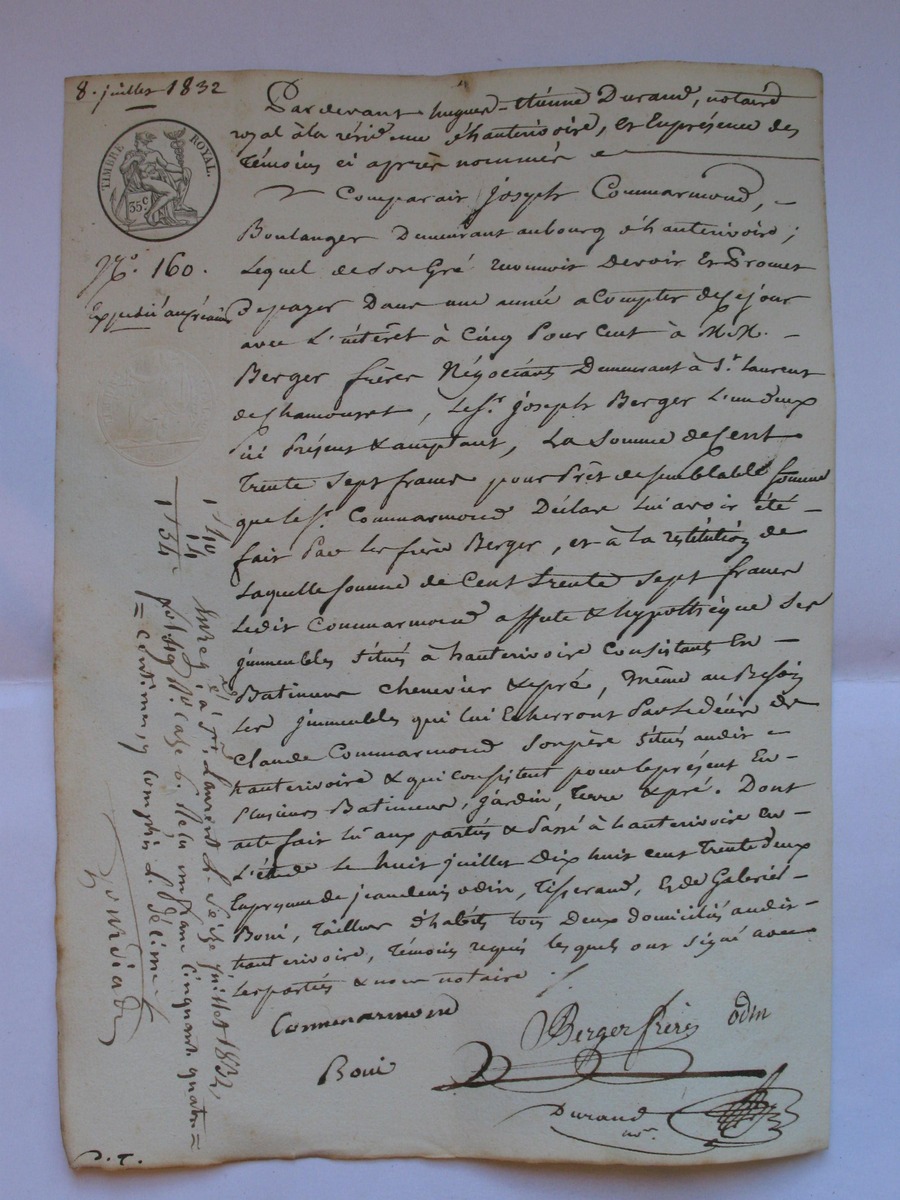 8. juillet 1832
TIMBRE ROYAL.
35 c
No. 160.
Expédié au créan
Pardevant hugues-étiénne Durand, notaire
royal à la résidence d'hauterivoire, et En présence des
témoins ci après nommés
Comparait joseph Commarmond,
Boulanger Demeurant au bourg d'hauterivoire;
Lequel de Son Gré reconnoit Devoir Et Promet
De payer Dans une année à Compter de ce jour
avec L'intérêt à Cinq Pour Cent à M.M.
Berger frères Négociants Demeurant à St. Laurent
de Chamousset, Le Sr. joseph Berger L'un deux
ici Présent & acceptant, La Somme de Cent
Trente Sept francs pour Prêt de semblable somme
que le Sr. Commarmond Déclare Lui avoir été
fait Par les frères Berger, et à la restitution de
Laquelle somme de Cent trente Sept francs
Ledit Commarmond affecte & hypothèque Ses
jmmeubles Situés à hauterivoire Consistant En
Batiments Chenevier & pré, même au Besoin
Les jmmeubles qui lui Echerront Par le décès de
Claude Commarmond Son père Situés audit
hauterivoire & qui consistent pour le présent En
plusieurs Batiments, jardin, terre & pré. Dont
acte fait lu aux parties & Passé à hauterivoire En
L'étude le huit juillet Dix huit cent trente deux
En présence de jean denis odin, Tisserand, Et de
Boni, Tailleur d'habits tous Deux domiciliés audit
hauterivoire, Témoins requis lesquels ont signé avec
Les parties & nous notaire
Commarmond
Berger frères
odin
Boni
Durand
nore.
1f 40
14
1f 54
Enreg é à St. Laurent le Seize juillet 1832,
case 6. Reçu un franc cinquante quatre
centimes y compris le Décime
p. T.